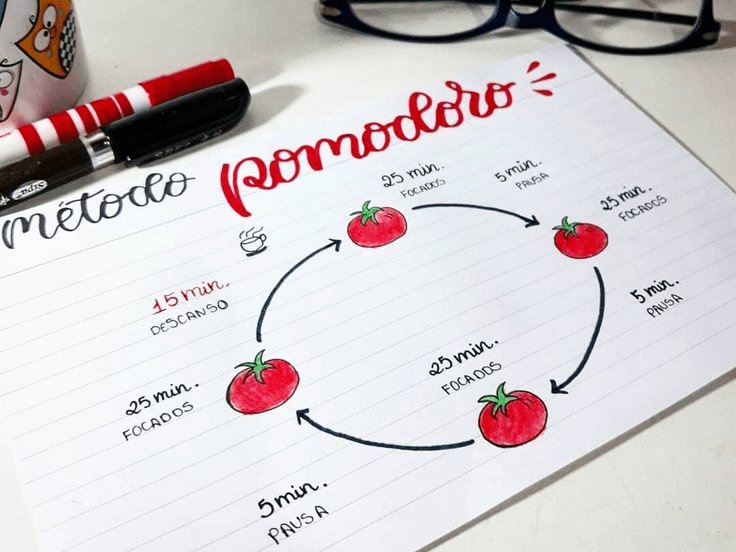 método pomodoro
25 min.
FOCADOS
5 min.
PAUSA
25 min.
FOCADOS
5 min.
PAUSA
25 min.
FOCADOS
5 min.
PAUSA
25 min.
FOCADOS
15 min.
DESCANSO